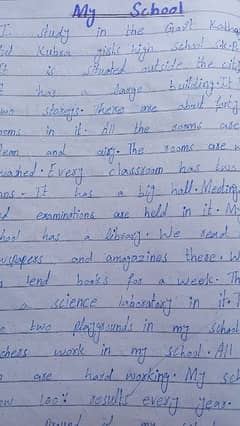 My School
I study in the Govt
Kubra girls high school
It is situated outside the city
has a large building. It
two storeys. There are about forty
rooms in it. All the rooms are
clean and airy. The rooms are
washed. Every classroom has two
fans. It has a big hall. Meeting
and examinations are held in it. My
school has a library. We read
newspapers and amagazines there. We
lend books for a week. Th
a science laboratory in it.
two playgrounds in my school
teachers work in my school. All
are hard working. My sch
100% results every year.